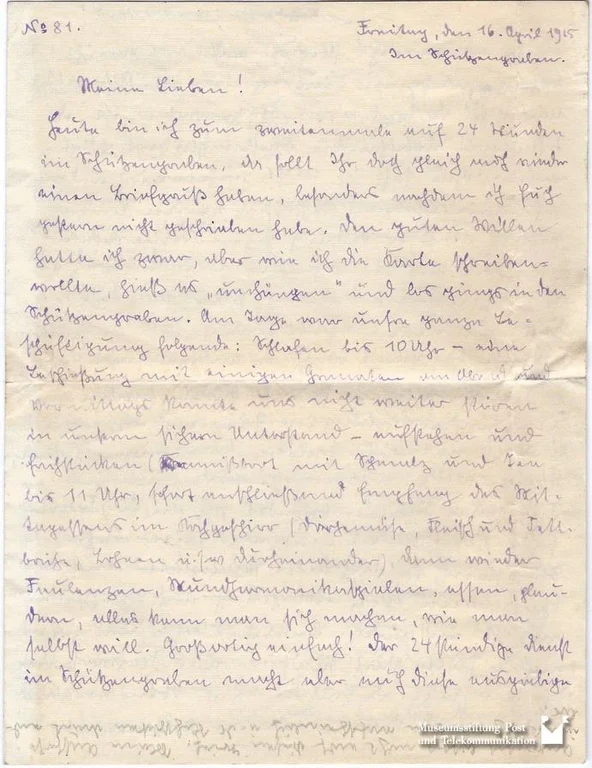 No 81.
Freitag, den 16. April 1915
Im Schützengraben.
Meine Lieben!
Heute bin ich zum zweitenmale auf 24 Stunden
im Schützengraben, da sollt Ihr doch gleich auch wieder
einen Briefgruß haben, besonders nachdem ich Euch
gestern nicht geschrieben habe. Den guten Willen
hatte ich zwar, aber wie ich die Karte schreiben
wollte, hieß es „umhängen" und los gings in den
Schützengraben. Am Tage war unsre ganze Be-
schäftigung folgende: Schlafen bis 10 Uhr – eine
Beschießung mit einigen Granaten am Abend und
vormittags konnte uns nicht weiter stören
in unserm sichern Unterstand – aufstehen und
frühstücken (Kommißbrot mit Schmalz und Tee
bis 11 Uhr, sofort anschließend Empfang des Mit-
tagessens im Kochgeschirr (Dörrgemüse, Fleisch und Fett-
brühe, Bohnen u.s.w durcheinander), dann wieder
Faulenzen, Mundharmonikaspielen, essen, plau-
dern, alles kann man sich machen, wie man
selbst will. Großartig einfach! Der 24stündige Dienst
im Schützengraben macht aber auch diese ausgiebige
Museumsstiftung Post
und Telekommunikation